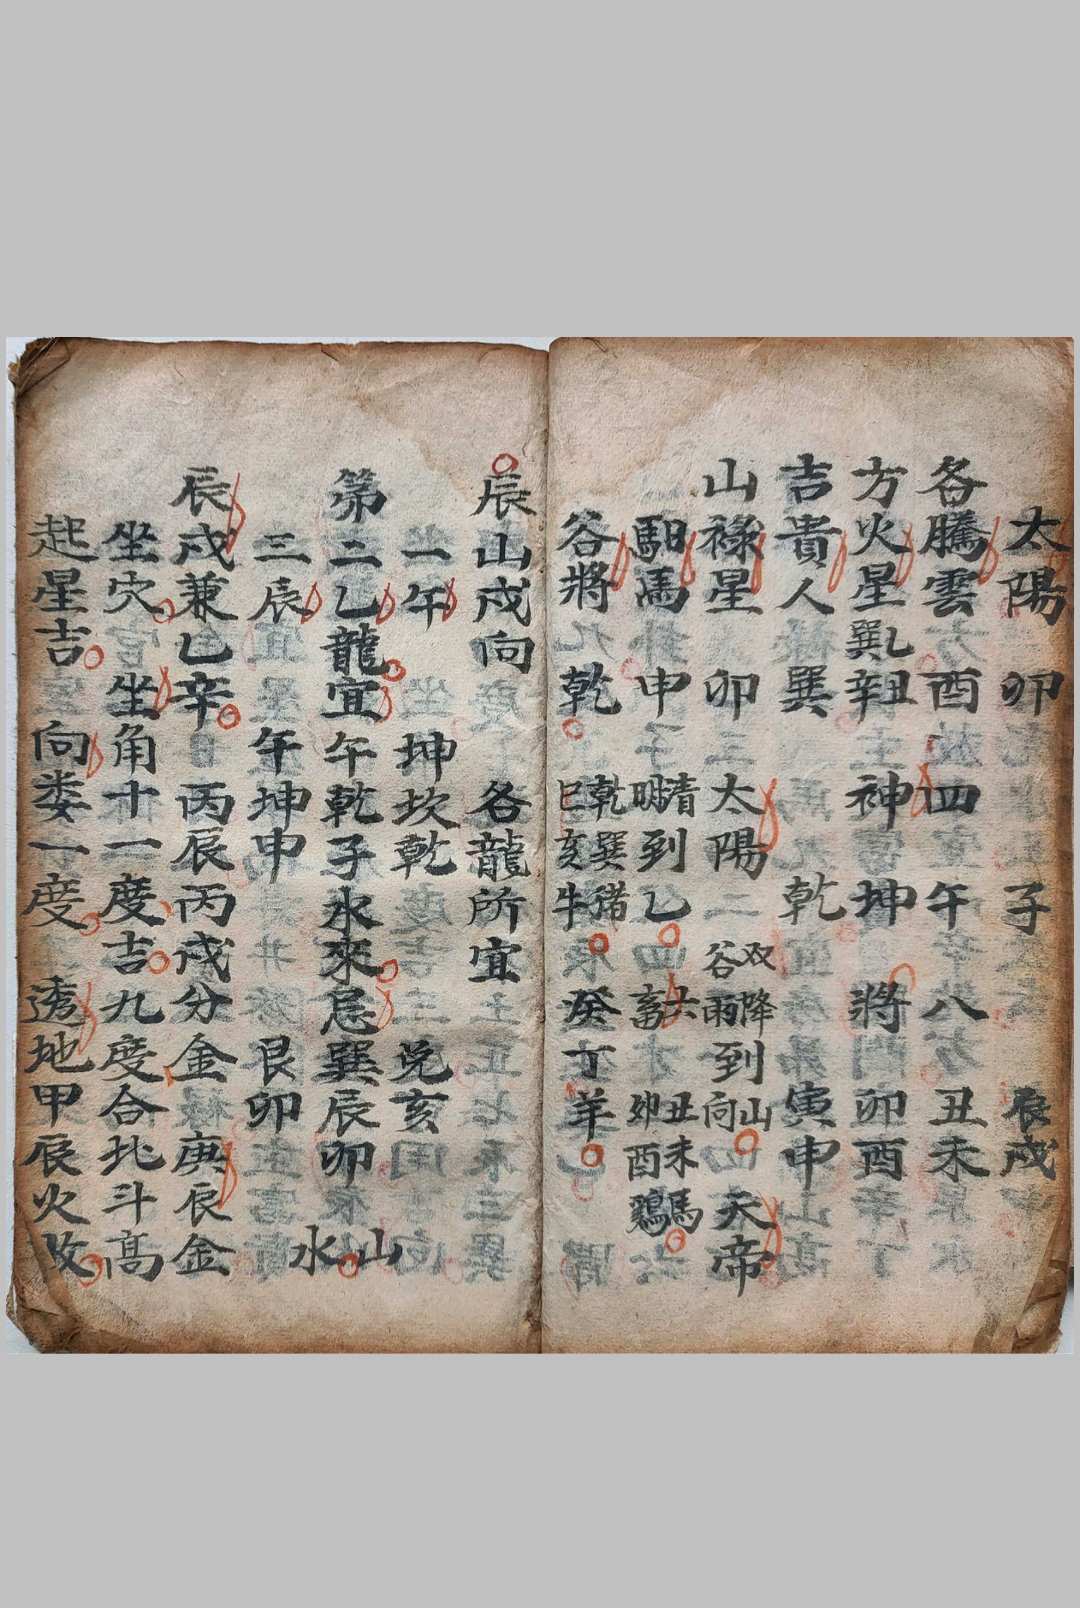 太陽 卯 子 辰戍
各騰雲 酉 四 午 八 丑未
方火星 乹巽 丑辛 神 坤 將 卯酉
吉貴人 巽 乾 寅申
山祿星 卯 太陽 二 双降 谷雨 到 山向 天帝
馹馬 申 清明 到乙 六畜 丑未馬 卯酉鷄
谷將 乾 乾巽猪 巳亥牛 癸丁羊
辰山戍向 各龍所宜
一午 坤坎乾 兑亥山
第二乙龍宜午乾子水來忌巽辰卯水
三辰 午坤申 艮卯
辰戍兼乙辛 丙辰丙戍分金 庚辰金
坐穴 坐角十一度吉九度合北斗高
起星吉 向娄一度 透地甲辰火攺